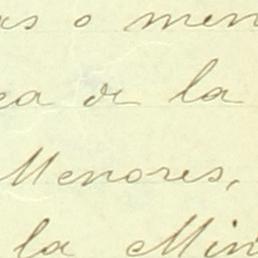 as o men
ea de la
Menores,
la Min